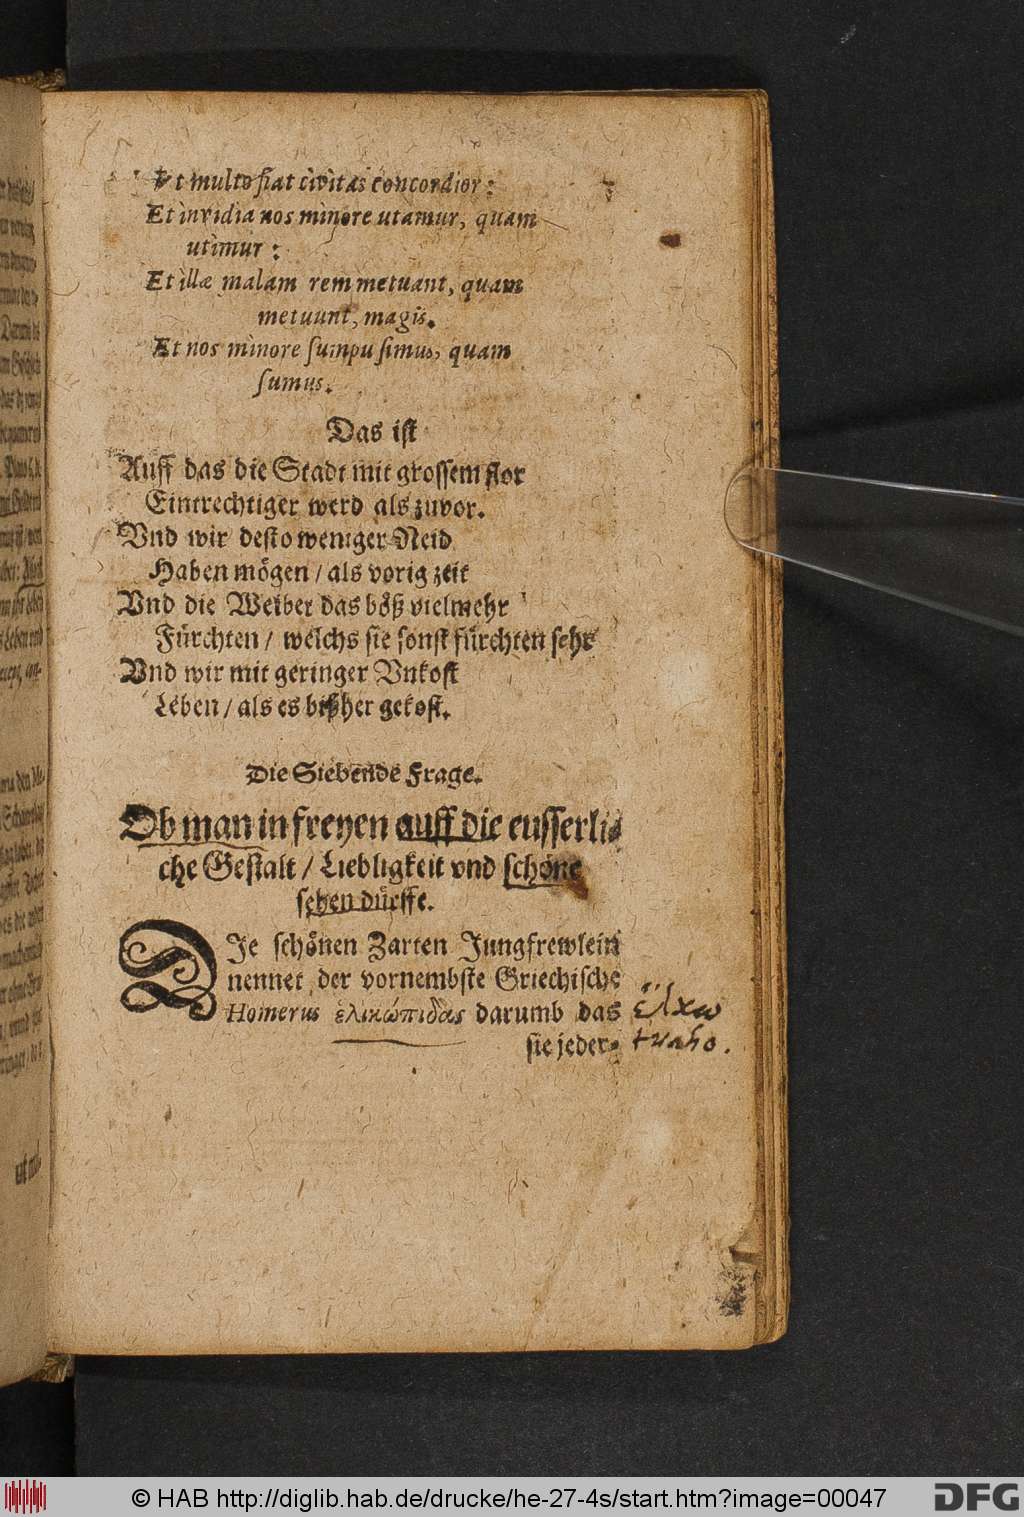 Vt multo fiat civitas concordior:
Et invidia nos minore utamur, quam
utimur:
Et illæ malam rem metuant, quam
metuunt, magis.
Et nos minore sumpu simus, quam
sumus.
Das ist
Auff das die Stadt mit grossem flor
Eintrechtiger werd als zuvor.
Vnd wir desto weniger Neid
Haben mögen / als vorig zeit
Vnd die Weiber das böß vielmehr
Fürchten / welchs sie sonst fürchten sehr
Vnd wir mit geringer Vnkost
Leben / als es bißher gekost.
Die Siebende Frage.
Ob man in freyen auff die eusserli-
che Gestalt / Liebligkeit vnd schöne
sehen dürffe.
DIe schönen Zarten Jungfrewlein
nennet der vornembste Griechische
Homerus ἑλικώπιδας darumb das
sie jeder-
ἕλκω
traho.
© HAB http://diglib.hab.de/drucke/he-27-4s/start.htm?image=00047
DFG